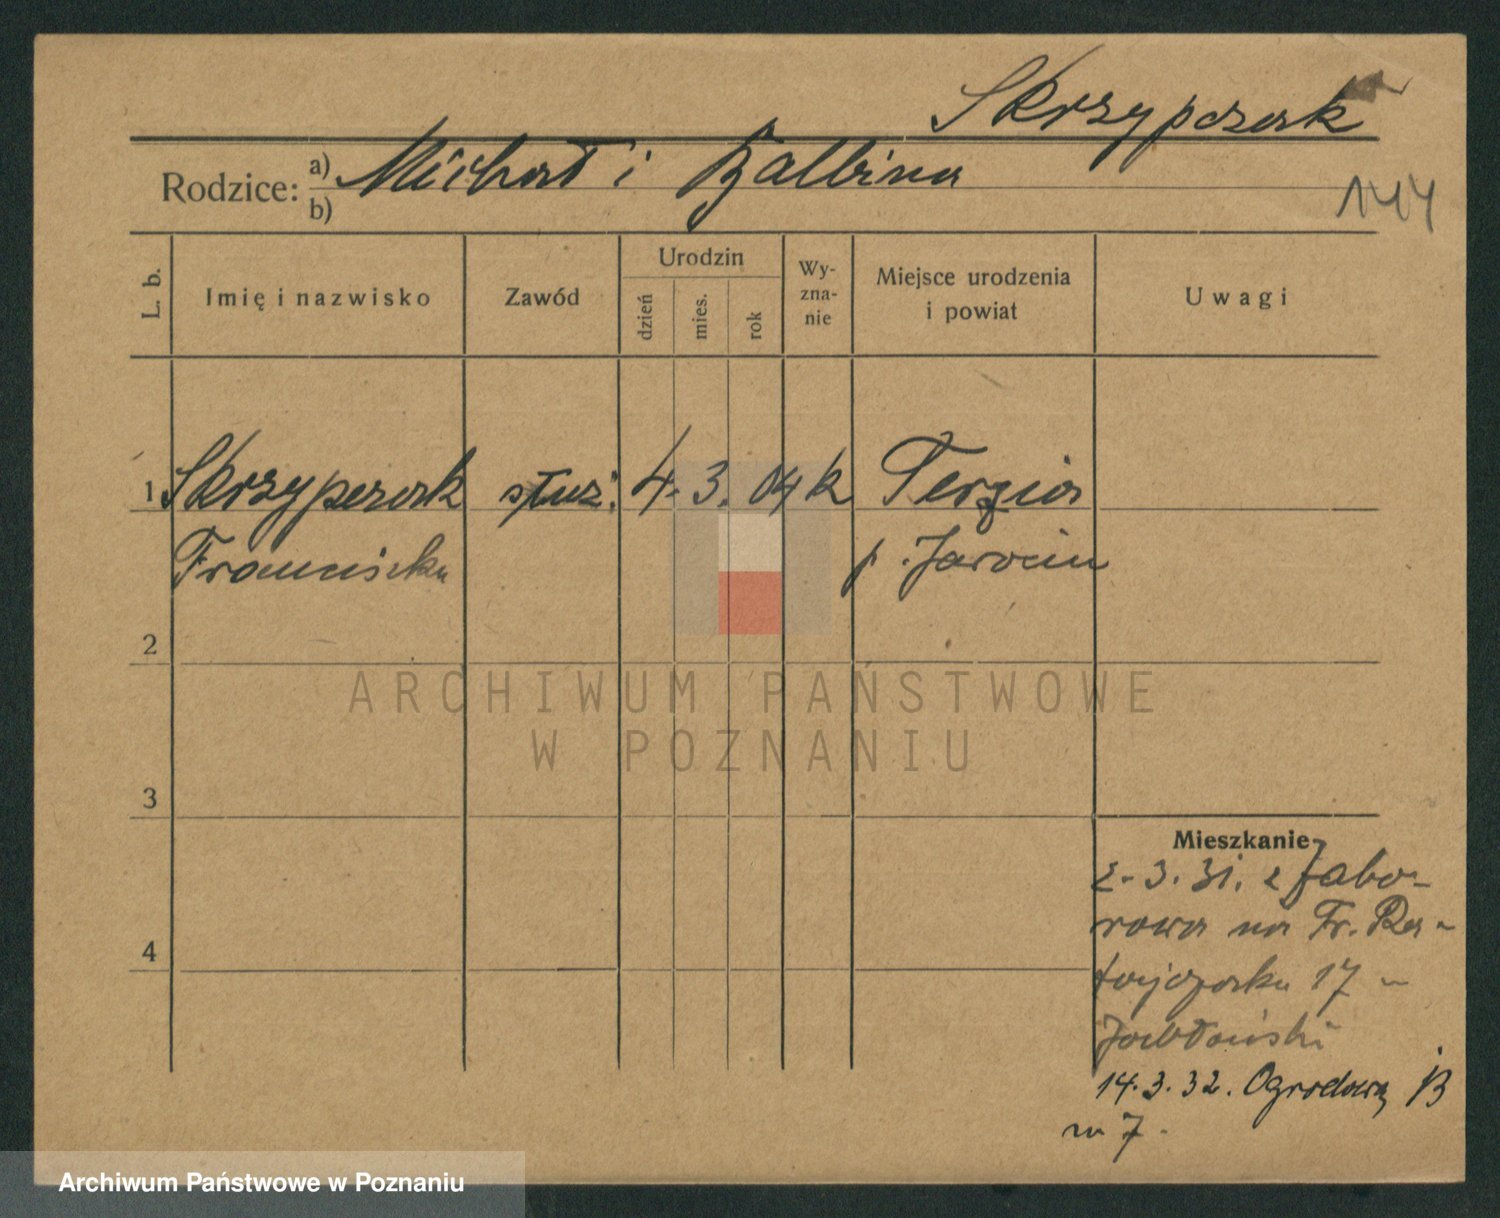 Skrzypczak
Rodzice: a) Michał i Balbina
b)
144
L. b.
Imię i nazwisko
Zawód
Urodzin
dzień
mies.
rok
Wy-
zna-
nie
Miejsce urodzenia
i powiat
Uwagi
1 Skrzypczak służ. 4. 3. 04 k
Franciszka p. Jarocin
2
3
4
Mieszkanie
2. 3. 31. z Zabo-
rowa na Fr. Ra-
tajczaka 17 -
Jabłoński
14. 3. 32. Ogrodowa
m 7.
ARCHIWUM PAŃSTWOWE
W POZNANIU
Archiwum Państwowe w Poznaniu